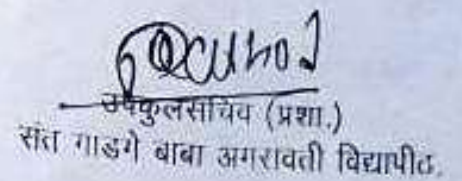 उपकुलसचिव (प्रशा.)
संत गाडगे बाबा अमरावती विद्यापीठ.